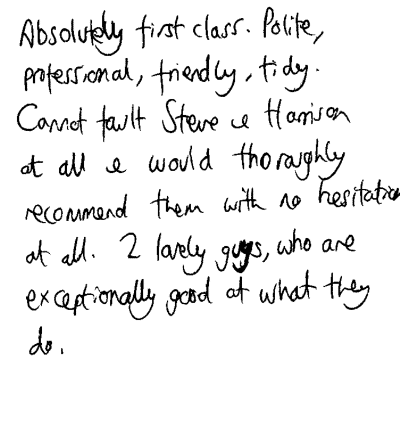 Absolutely first class. Polite,
professional, friendly, tidy.
Cannot fault Steve & Harrison
at all & would thoroughly
recommend them with no hesitation
at all. 2 lovely guys, who are
exceptionally good at what they
do.